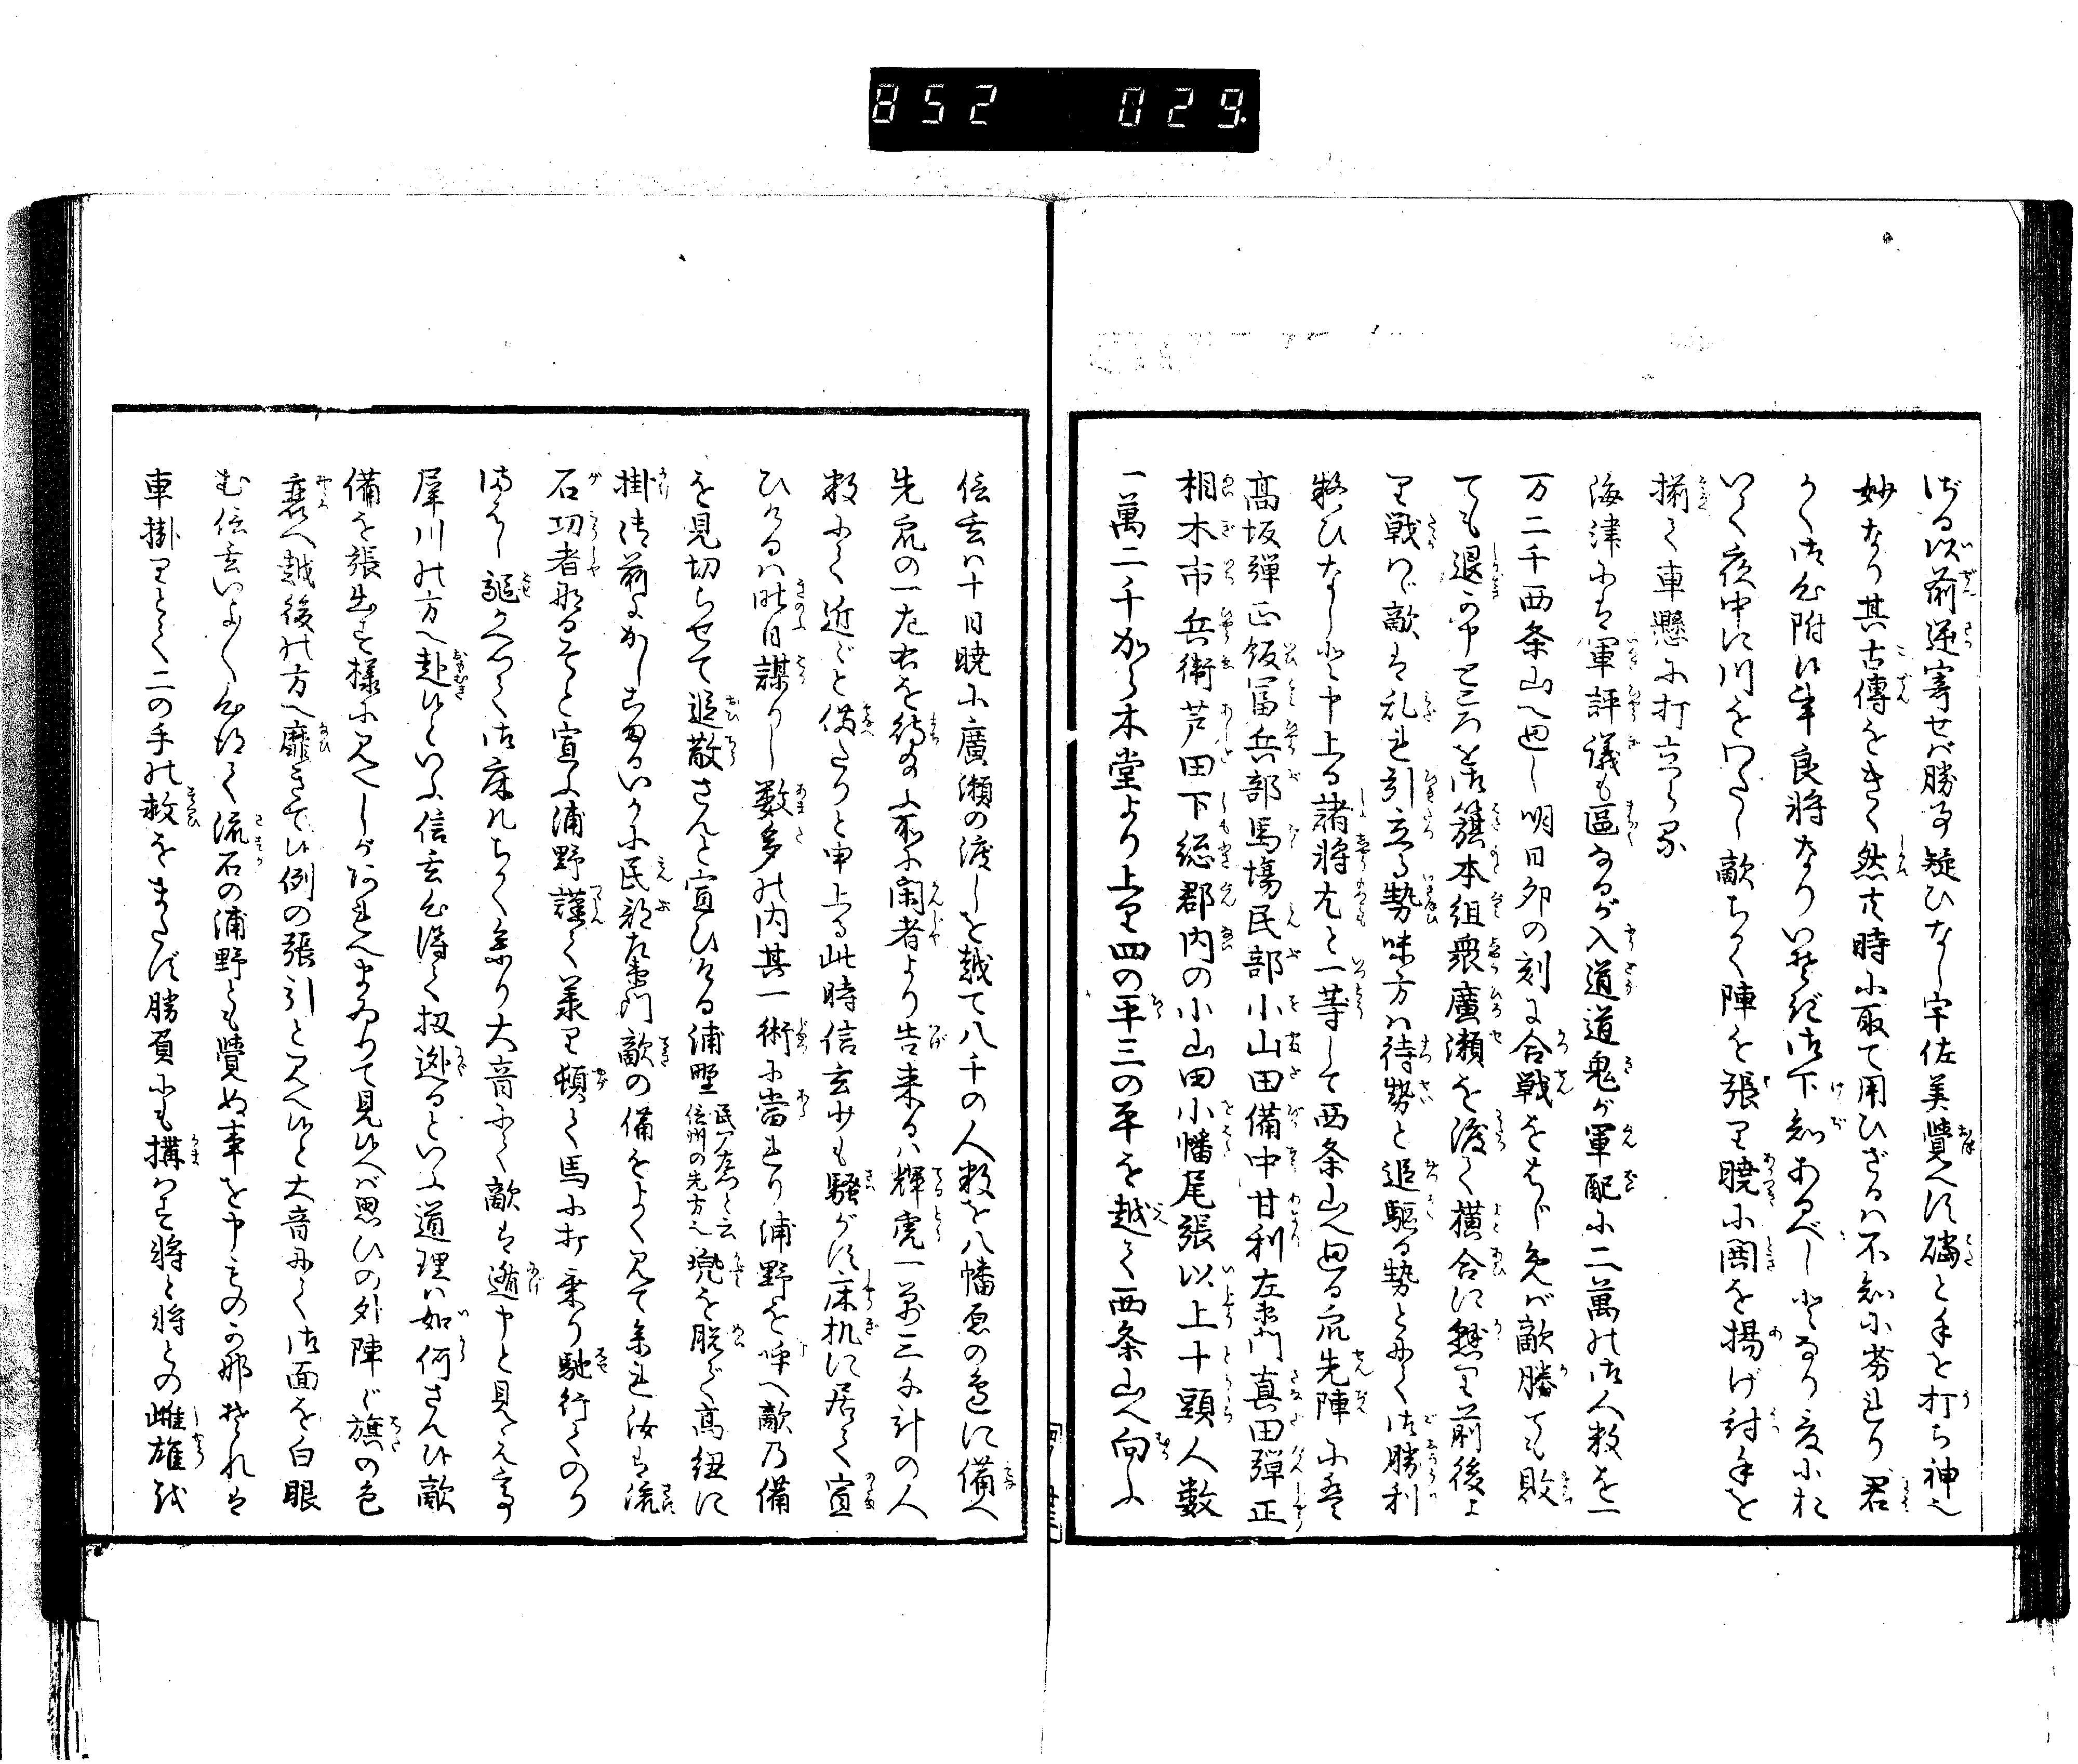 852 029
ざる以前逆寄せば勝事疑ひなし宇佐美覚へず礑と手を打ち神之
妙なり其古傳をきく然共時に取て用ひざるは不知に劣れり君
かく御心附は良将なりいそぎ御下知あるべしとなり
いて夜中に川をわたし敵ちかく陣を張り暁に閧を揚げ討手を
揃て車懸に打立
海津には軍評議も區なるが入道道鬼が軍配に二萬の御人数を一
万二千西条山へ廻し明日卯の刻に合戦をはじめば敵勝ても敗
ても退かんところを御籏本組衆廣瀬を渡て横合に懸り前後よ
り戦はゞ敵は乱れ引立る勢味方は待勢と追駆る勢とにて御勝利
疑ひなしと申上る諸将尤と一等して西条山へ廻る先陣には
高坂弾正飯冨兵部馬塲民部小山田備中甘利左衛門真田弾正
相木市兵衛芦田下総郡内の小山田小幡尾張以上十頭人数
一萬二千から木堂より上り四の平三の平を越て西条山へ向ふ
信玄は十日暁に廣瀬の渡しを越て八千の人数を八幡原の邉に備へ
先衆の一左右を待給ふ所に間者より告来るは輝虎一万三千計の人
数にて近ごと備たりと申上る此時信玄少も騒がず床机に居て宣
ひけるは昨日謀りし数多の内其一術に當れり浦野を呼へ敵乃備
を見切らせて追散さんと宣ひける浦野民部左衛門と云信州の先方之兜を脱で高紐に
掛御前にかしこまるいかに民部左衛門敵の備をよく見て参れ汝は流
石功者なるぞと宣ふ浦野謹て義り頓て馬に打乗り馳行てのり
まはし駈かへつて御床几ちかく参り大音にて敵は遁申と見へ
犀川の方へ赴ひといふ信玄心得て扨迯るといふ道理は如何さんひ敵
備を張出す様に見へしが夫へまゐりて見ひへば思ひの外陣ど旗の色
裏へ越後の方へ靡きてひ例の張引と見へひと大音にて御面を白眼
む信玄いよ〳〵心得て流石の浦野とも覚ぬ事を申ものか那それは
車掛りとて二の手の救をまたず勝負にも搆はず将と将との雌雄を